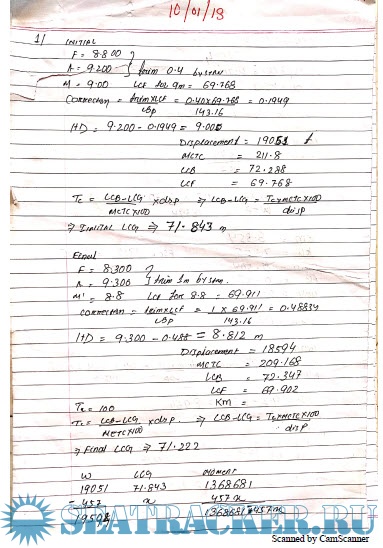 10/01/18
1/ INITIAL
F = 8.800
A = 9.200 } trim 0.4 by stern
M = 9.00 LCF for 9m = 69.768
Correction = trim x LCF / LBP = 0.40 x 69.768 / 143.16 = 0.1949
HD = 9.200 - 0.1949 = 9.005
Displacement = 19051 t
MCTC = 211.8
LCB = 72.288
LCF = 69.768
Tc = LCB-LCG / MCTC x100 x disp ⇒ LCB-LCG = Tc x MCTC x100 / disp
⇒ Initial LCG ⇒ 71.843 m
Final
F = 8.300
A = 9.300 } trim 1m by stern.
M = 8.8 LCF for 8.8 = 69.911
correction = trim x LCF / LBP = 1 x 69.911 / 143.16 = 0.48834
HD = 9.300 - 0.488 = 8.812 m
Displacement = 18594
MCTC = 209.168
LCB = 72.347
LCF = 69.902
KM =
Tc = 100
Tc = LCB-LCG / MCTC x100 x disp. ⇒ LCB-LCG = Tc x MCTC x100 / disp
⇒ Final LCG ⇒ 71.222
W LCG MOMENT
19051 71.843 1368681
-457 x 457x
18594 1368681-457x
SEATRACKER.RU
Scanned by CamScanner